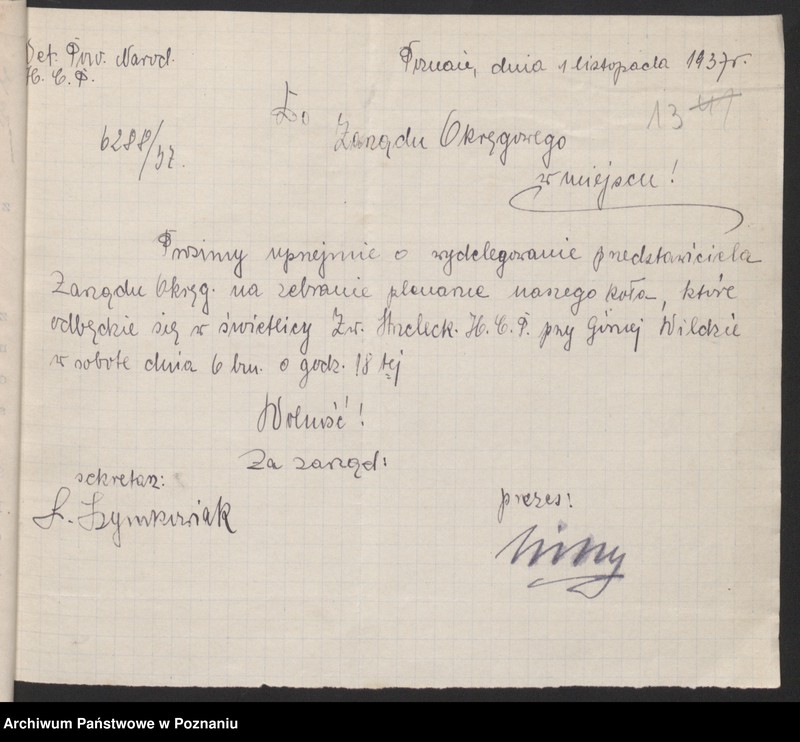 Wet. Pow. Narod.
H. C. P.
Poznań, dnia 1 listopada 1937r.
13
6288/37.
Do
Zarządu Okręgowego
w miejscu!
Prosimy uprzejmie o wydelegowanie przedstawiciela
Zarządu Okręg. na zebranie plenarne naszego koła, które
odbędzie się w świetlicy Zw. Strzeleck. H. C. P. przy Górnej Wildzie
w sobotę dnia 6 bm. o godz. 18 tej
Wolność!
Za zarząd:
sekretarz:
S. Szymkowiak
prezes:
Archiwum Państwowe w Poznaniu